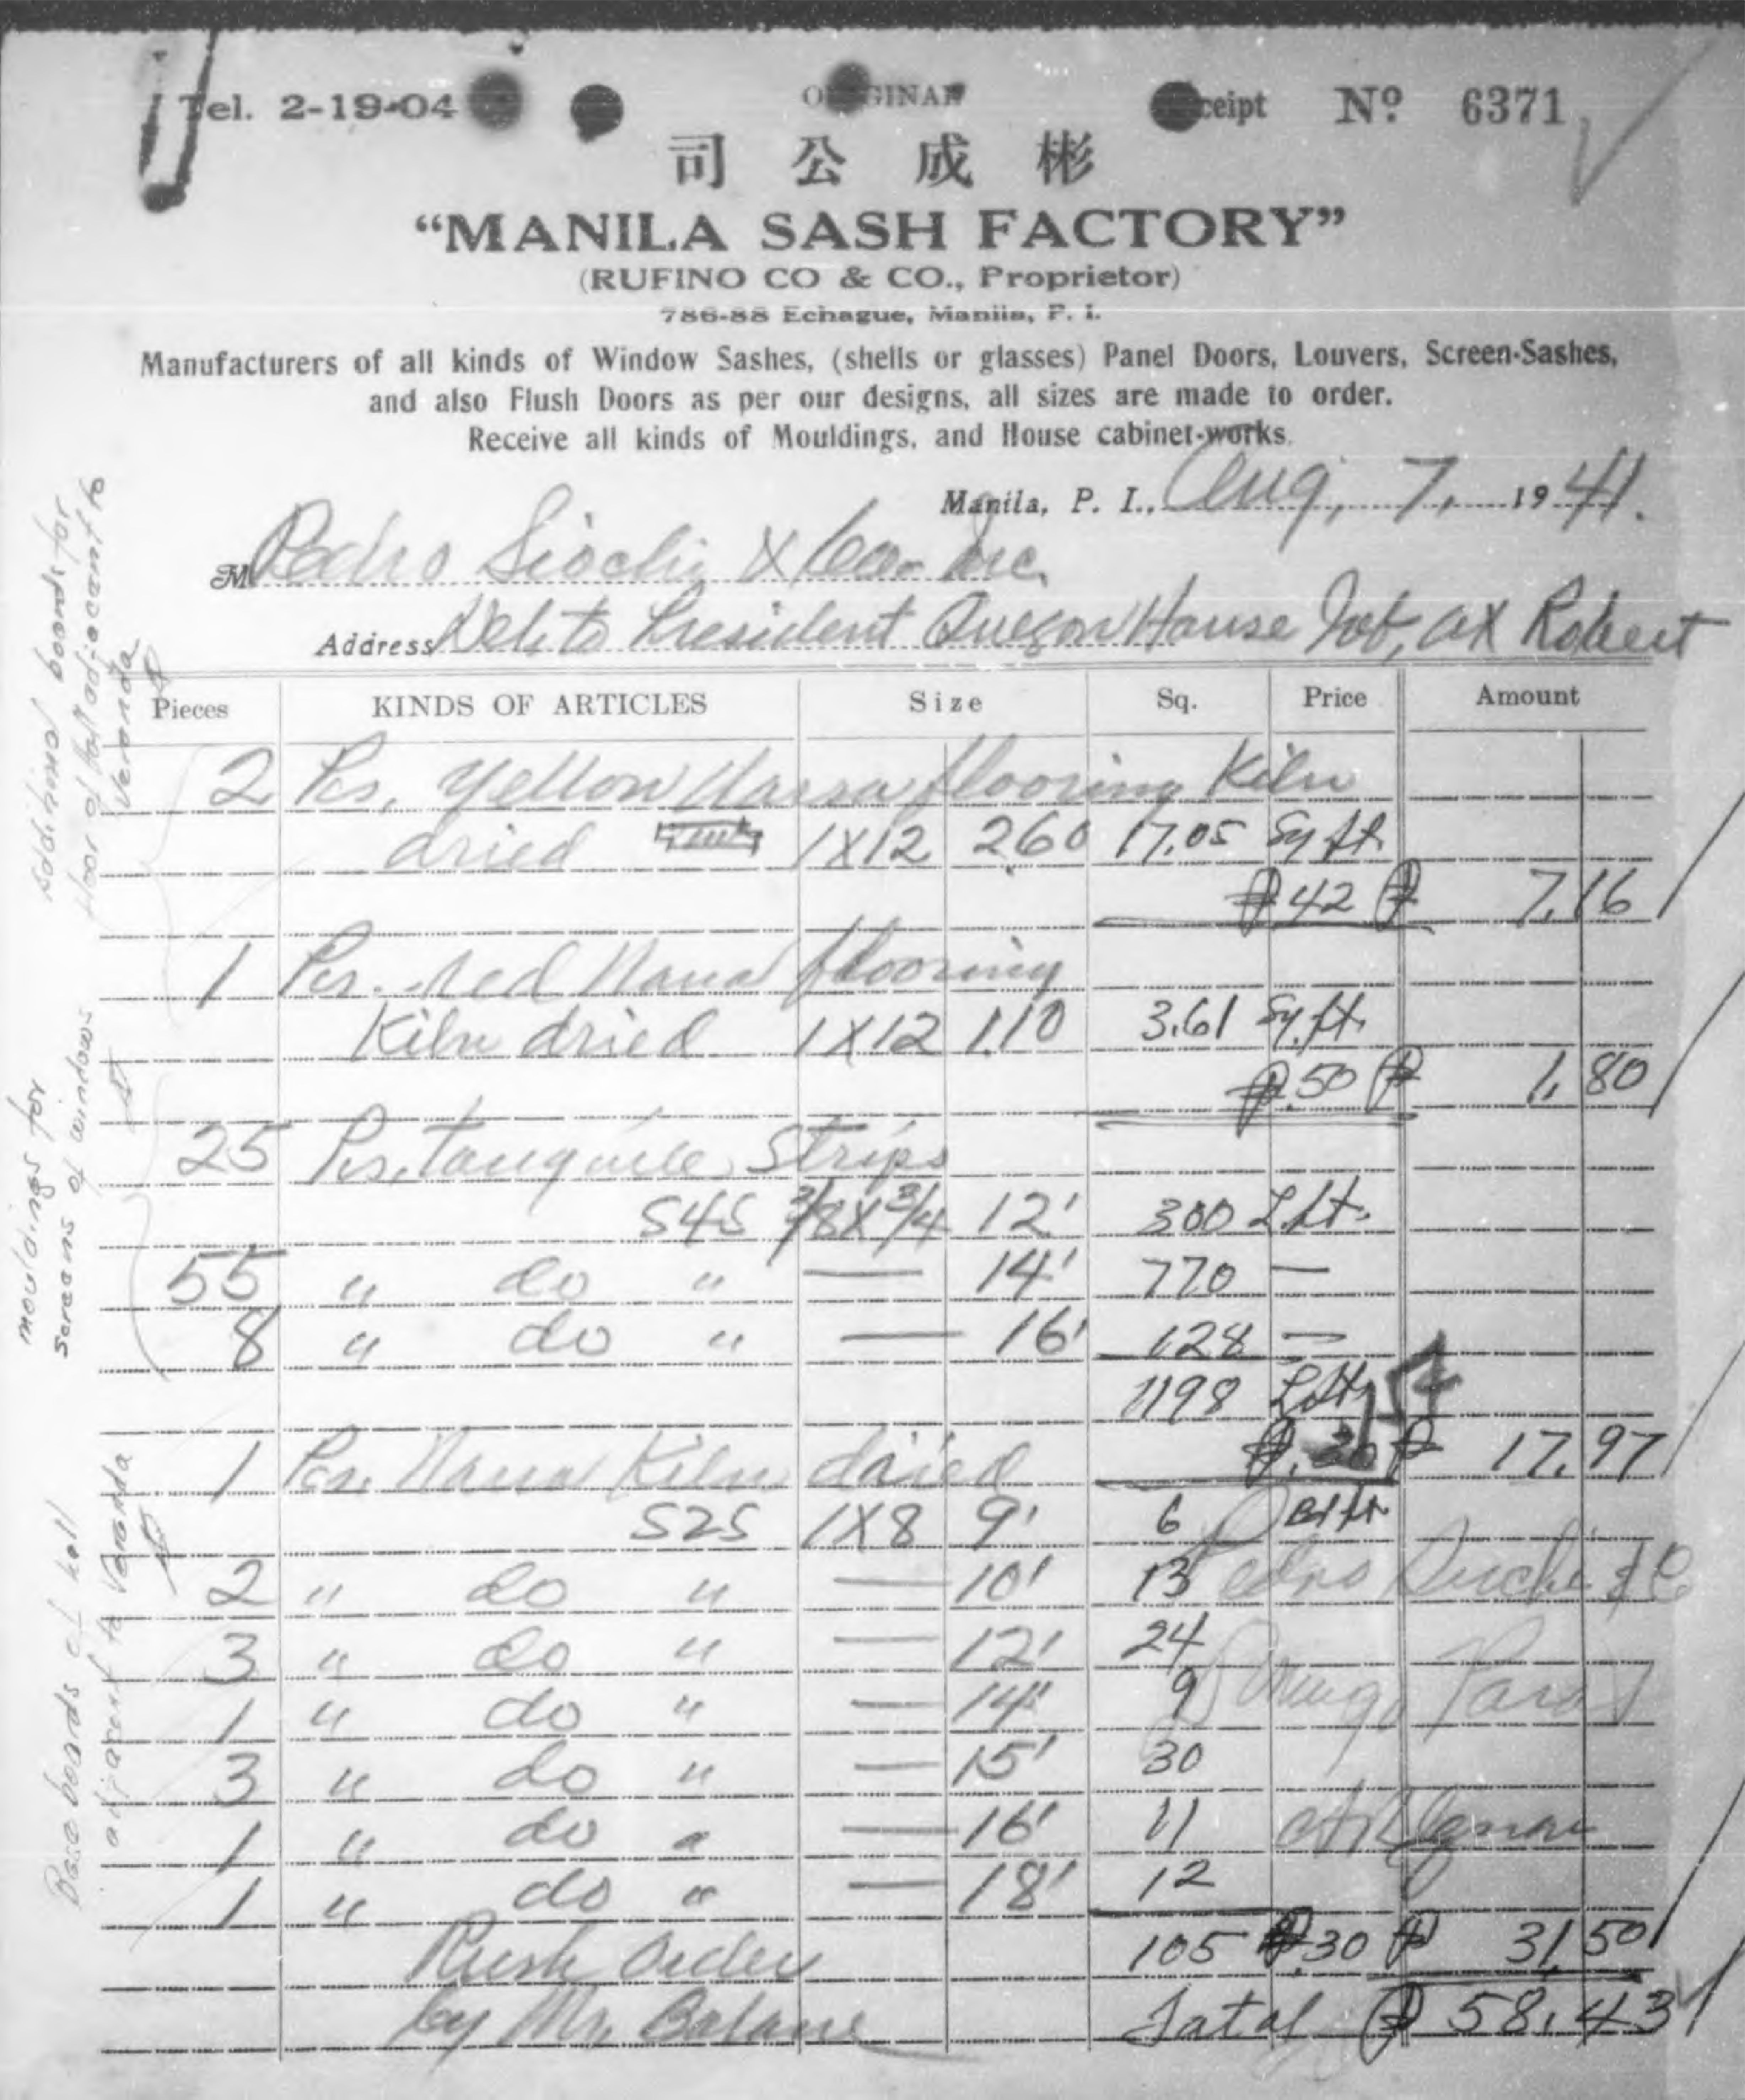 Tel. 2-19-04
ORIGINAL
Receipt No. 6371
司公成彬
“MANILA SASH FACTORY”
(RUFINO CO & CO., Proprietor)
786-88 Echague, Manila, P. I.
Manufacturers of all kinds of Window Sashes, (shells or glasses) Panel Doors, Louvers, Screen-Sashes,
and also Flush Doors as per our designs, all sizes are made to order.
Receive all kinds of Mouldings, and House cabinet-works.
Manila, P. I., Aug, 7, 1941.
M Pedro Siochi & Co. Inc.
Address Del. to President Quezon House Job, at Robert
Pieces KINDS OF ARTICLES Size Sq. Price Amount
2 Pcs, Yellow Narra flooring Kiln
dried 1X12 260 17.05 Sq ft.
₱.42 ₱ 7.16
1 Pcs. Red Narra flooring
Kiln dried 1X12 1.10 3.61 Sq. ft.
₱.50 ₱ 1.80
25 Pcs. Tanguile Strips
S4S 3/8X3/4 12' 300 L.ft.
55 " do " — 14' 770 —
8 " do " — 16' 128 —
1198 L.ft.
₱ 17.97
1 Pcs. Narra Kiln dried
S2S 1X8 9' 6 Bd ft
2 " do " — 10' 13
3 " do " — 12' 24
1 " do " — 14' 9
3 " do " — 15' 30
1 " do " — 16' 11
1 " do " — 18' 12
Rush Order 105 ₱.30 ₱ 31.50
by Mr. Total ₱ 58.43
Additional boards for
floor of hall adjacent to
Veranda
mouldings for
screens of windows
Base boards of hall
adjacent to Veranda